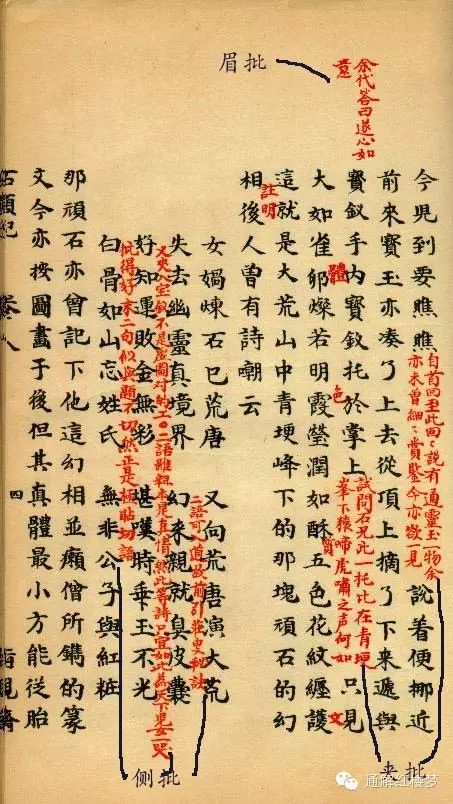 眉批
余代答曰遂心如
意
今児到要瞧瞧
自首回至此回回說有通靈玉一物余
亦未曾細細賞鑒今亦欲一見
說着便挪近
前来寳玉亦凑了上去從頂上摘了下来遞與
寳釵手内寳釵托於掌上
試問石兄此一托比在青埂
峯下猿啼虎嘯之声何如
只見
體
色
質
文
大如雀卵燦若明霞瑩潤如酥五色花紋纏護
這就是大荒山中青埂峰下的那塊頑石的幻
註明
相後人曾有詩嘲云
女媧煉石已荒唐 又向荒唐演大荒
二語可入道故前引莊叟秘訣
失去幽靈真境界 幻来親就臭皮囊
又夾入寳釵不是虛圖對的工〇二語雖粗本是真情然此等詩只宜如此為天下児女一哭
好知運敗金無彩 堪嘆時乖玉不光
批得好末二句似與題不切然正是極貼切語
白骨如山忘姓氏 無非公子與紅粧
那頑石亦曾記下他這幻相並癩僧所鐫的篆
文今亦按圖畫于後但其真體最小方能從胎
石頭記 卷八 四 脂硯齋
侧批
夹批
通解红楼梦